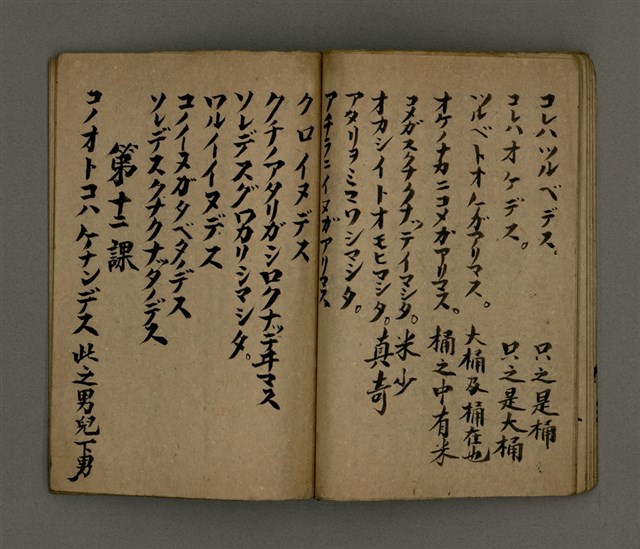 コレハツルベデス、 只之是桶
コレハオケデス。 只之是大桶
ツルベトオケガアリマス。 大桶及桶在也
オケノナカニコメガアリマス。 桶之中有米
コメガスクナクナッテイマシタ。 米少
オカシイトオモヒマシタ。 真奇
アタリヲミマワシマシタ。
アチラニイヌガアリマス
クロイヌデス
クチノアタリガシロクナッテヰマス
ソレデスグワカリシマシタ。
ワルイイヌデス
コノイーヌガタベタノデス
ソレデスクナクナッタノデス
第十二課
コノオトコハケナンデス 此之男兒下男